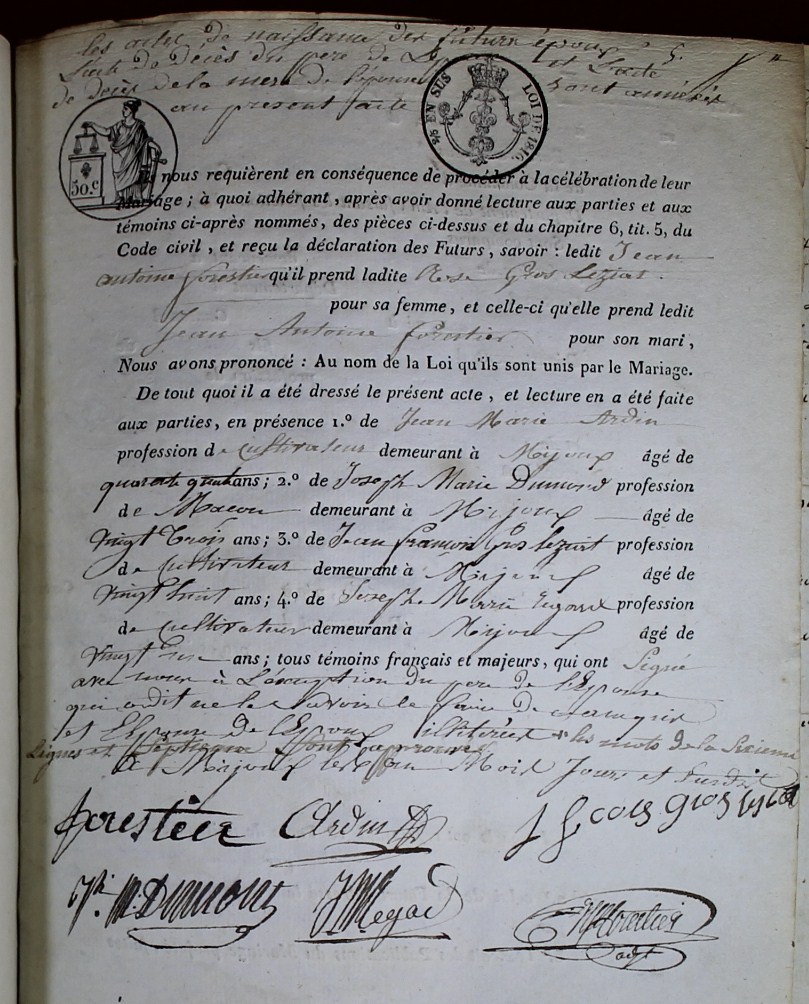 les actes de naissance des futurs époux
L'acte de décès du père de et L'acte
de décès de la mere de l'épouse sont annexés
au présent acte
2/5 EN SUS LOI DE 1816.
50.c
nous requièrent en conséquence de procéder à la célébration de leur
Mariage; à quoi adhérant, après avoir donné lecture aux parties et aux
témoins ci-après nommés, des pièces ci-dessus et du chapitre 6, tit. 5, du
Code civil, et reçu la déclaration des Futurs, savoir : ledit Jean
antoine forestier qu'il prend ladite Rose Gros Leziat.
pour sa femme, et celle-ci qu'elle prend ledit
Jean Antoine forestier pour son mari,
Nous avons prononcé : Au nom de la Loi qu'ils sont unis par le Mariage.
De tout quoi il a été dressé le présent acte, et lecture en a été faite
aux parties, en présence 1.º de Jean Marie Ardin
profession de Cultivateur demeurant à Mijoux âgé de
quarante ans; 2.º de Joseph Marie Dumond profession
de Macon demeurant à Mijoux âgé de
Vingt trois ans; 3.º de Jean françois Gros leziat profession
de Cultivateur demeurant à Mijoux âgé de
Vingt huit ans; 4.º de Joseph Marie profession
de Cultivateur demeurant à Mijoux âgé de
Vingt ans; tous témoins français et majeurs, qui ont Signé
avec nous à L'éxception du pere de l'Epouse
qui a dit ne le savoir le faire de
et L'Epouse de l'Epoux illitérés les mots de la Sixieme
Lignes et Septieme sont approuvés
A Mijoux les an Mois Jours et Susdit
forestier Ardin J fcois gros lesiat
Jh M Dumont J M Regad
adjt